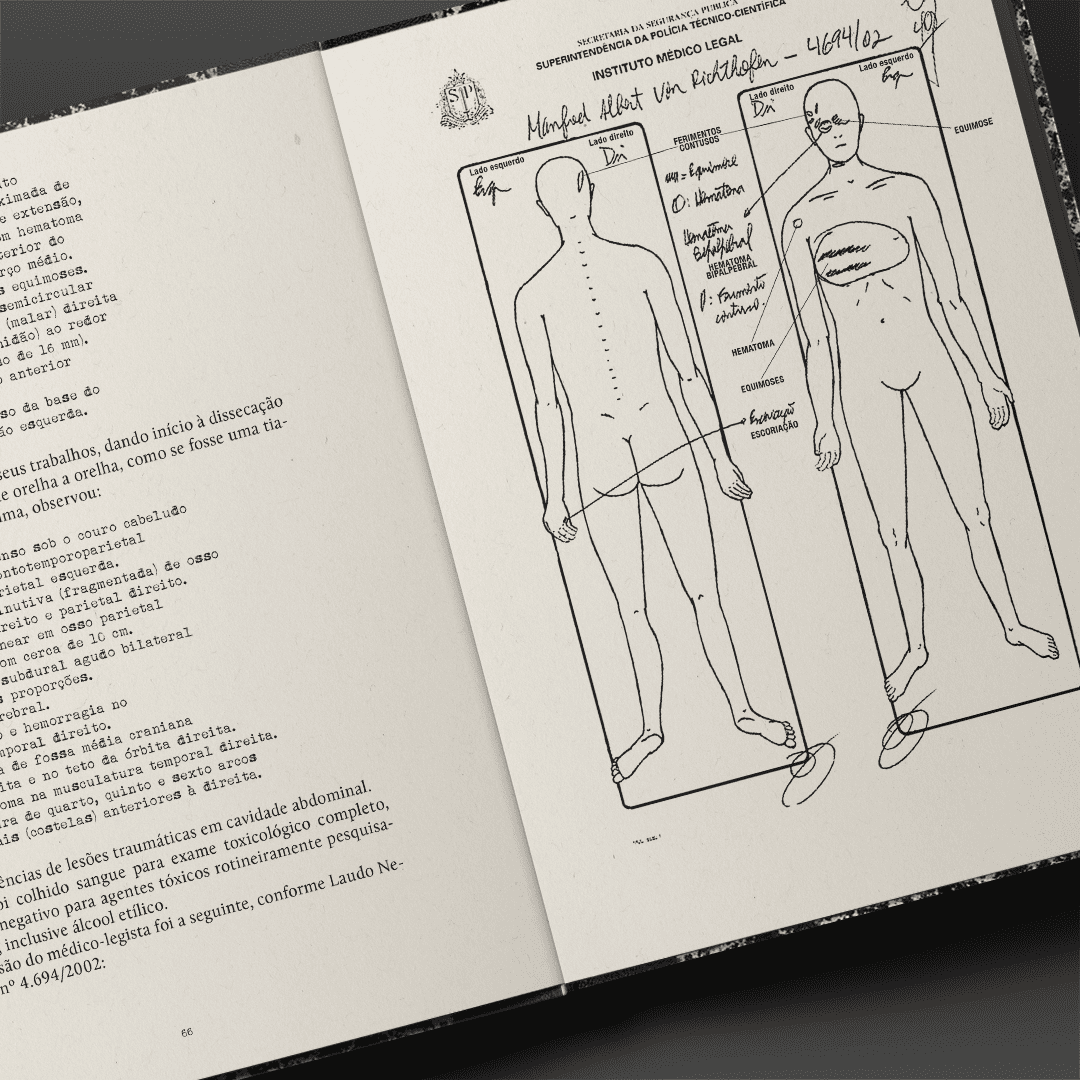 ito
ximada de
e extensão,
om hematoma
terior do
rço médio.
s equimoses.
semicircular
(malar) direita
nidão) ao redor
no de 16 mm).
o anterior
so da base do
ão esquerda.
seus trabalhos, dando início à dissecação
e orelha a orelha, como se fosse uma tia-
ma, observou:
nso sob o couro cabeludo
ontotemporoparietal
rietal esquerda.
inutiva (fragmentada) de osso
reito e parietal direito.
near em osso parietal
om cerca de 10 cm.
subdural agudo bilateral
s proporções.
rebral.
o e hemorragia no
mporal direito.
a de fossa média craniana
ita e no teto da órbita direita.
oma na musculatura temporal direita.
ra de quarto, quinto e sexto arcos
ais (costelas) anteriores à direita.
ências de lesões traumáticas em cavidade abdominal.
oi colhido sangue para exame toxicológico completo,
negativo para agentes tóxicos rotineiramente pesquisa-
, inclusive álcool etílico.
são do médico-legista foi a seguinte, conforme Laudo Ne-
nº 4.694/2002:
66
SECRETARIA DA SEGURANÇA PÚBLICA
SUPERINTENDÊNCIA DA POLÍCIA TÉCNICO-CIENTÍFICA
INSTITUTO MÉDICO LEGAL
SP
Manfred Albert Von Richthofen — 4694/02
Lado esquerdo
Esq
Lado direito
Dir
FERIMENTOS
CONTUSOS
= Equimose
: Hematoma
Hematoma
Bipalpebral
HEMATOMA
BIPALPEBRAL
: Ferimento
contuso.
HEMATOMA
EQUIMOSES
Escoriação
ESCORIAÇÃO
Lado direito
Dir
Lado esquerdo
Esq
EQUIMOSE